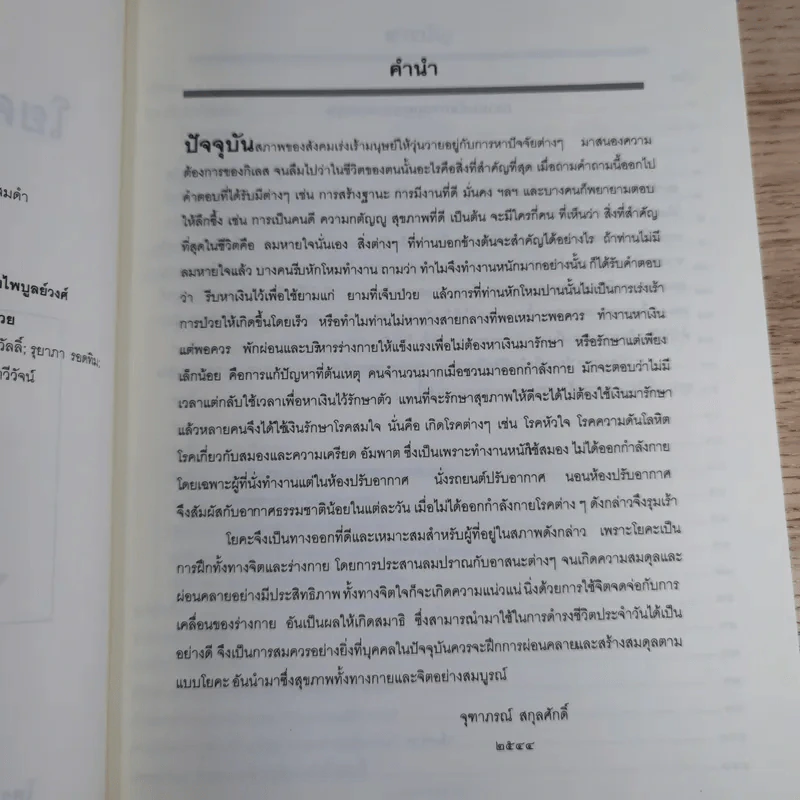 โยค
มดำ
ไพบูลย์วงศ์
วย
วัลลิ์; รุยาภา รอดทิม;
าวีวัจน์
คำนำ
ปัจจุบันสภาพของสังคมเร่งเร้ามนุษย์ให้วุ่นวายอยู่กับการหาปัจจัยต่างๆ มาสนองความ
ต้องการของกิเลส จนลืมไปว่าในชีวิตของตนนั้นอะไรคือสิ่งที่สำคัญที่สุด เมื่อถามคำถามนี้ออกไป
คำตอบที่ได้รับมีต่างๆ เช่น การสร้างฐานะ การมีงานที่ดี มั่นคง ฯลฯ และบางคนก็พยายามตอบ
ให้ลึกซึ้ง เช่น การเป็นคนดี ความกตัญญู สุขภาพที่ดี เป็นต้น จะมีใครกี่คน ที่เห็นว่า สิ่งที่สำคัญ
ที่สุดในชีวิตคือ ลมหายใจนั่นเอง สิ่งต่างๆ ที่ท่านบอกข้างต้นจะสำคัญได้อย่างไร ถ้าท่านไม่มี
ลมหายใจแล้ว บางคนรีบหักโหมทำงาน ถามว่า ทำไมจึงทำงานหนักมากอย่างนั้น ก็ได้รับคำตอบ
ว่า รีบหาเงินไว้เพื่อใช้ยามแก่ ยามที่เจ็บป่วย แล้วการที่ท่านหักโหมปานนั้นไม่เป็นการเร่งเร้า
การป่วยให้เกิดขึ้นโดยเร็ว หรือทำไมท่านไม่หาทางสายกลางที่พอเหมาะพอควร ทำงานหาเงิน
แต่พอควร พักผ่อนและบริหารร่างกายให้แข็งแรงเพื่อไม่ต้องหาเงินมารักษา หรือรักษาแต่เพียง
เล็กน้อย คือการแก้ปัญหาที่ต้นเหตุ คนจำนวนมากเมื่อชวนมาออกกำลังกาย มักจะตอบว่าไม่มี
เวลาแต่กลับใช้เวลาเพื่อหาเงินไว้รักษาตัว แทนที่จะรักษาสุขภาพให้ดีจะได้ไม่ต้องใช้เงินมารักษา
แล้วหลายคนจึงได้ใช้เงินรักษาโรคสมใจ นั่นคือ เกิดโรคต่างๆ เช่น โรคหัวใจ โรคความดันโลหิต
โรคเกี่ยวกับสมองและความเครียด อัมพาต ซึ่งเป็นเพราะทำงานหนักใช้สมอง ไม่ได้ออกกำลังกาย
โดยเฉพาะผู้ที่นั่งทำงานแต่ในห้องปรับอากาศ นั่งรถยนต์ปรับอากาศ นอนห้องปรับอากาศ
จึงสัมผัสกับอากาศธรรมชาติน้อยในแต่ละวัน เมื่อไม่ได้ออกกำลังกายโรคต่าง ๆ ดังกล่าวจึงรุมเร้า
โยคะจึงเป็นทางออกที่ดีและเหมาะสมสำหรับผู้ที่อยู่ในสภาพดังกล่าว เพราะโยคะเป็น
การฝึกทั้งทางจิตและร่างกาย โดยการประสานลมปราณกับอาสนะต่างๆ จนเกิดความสมดุลและ
ผ่อนคลายอย่างมีประสิทธิภาพ ทั้งทางจิตใจก็จะเกิดความแน่วแน่ นิ่งด้วยการใช้จิตจดจ่อกับการ
เคลื่อนของร่างกาย อันเป็นผลให้เกิดสมาธิ ซึ่งสามารถนำมาใช้ในการดำรงชีวิตประจำวันได้เป็น
อย่างดี จึงเป็นการสมควรอย่างยิ่งที่บุคคลในปัจจุบันควรจะฝึกการผ่อนคลายและสร้างสมดุลตาม
แบบโยคะ อันนำมาซึ่งสุขภาพทั้งทางกายและจิตอย่างสมบูรณ์
จุฑาภรณ์ สกุลศักดิ์
๒๕๔๔